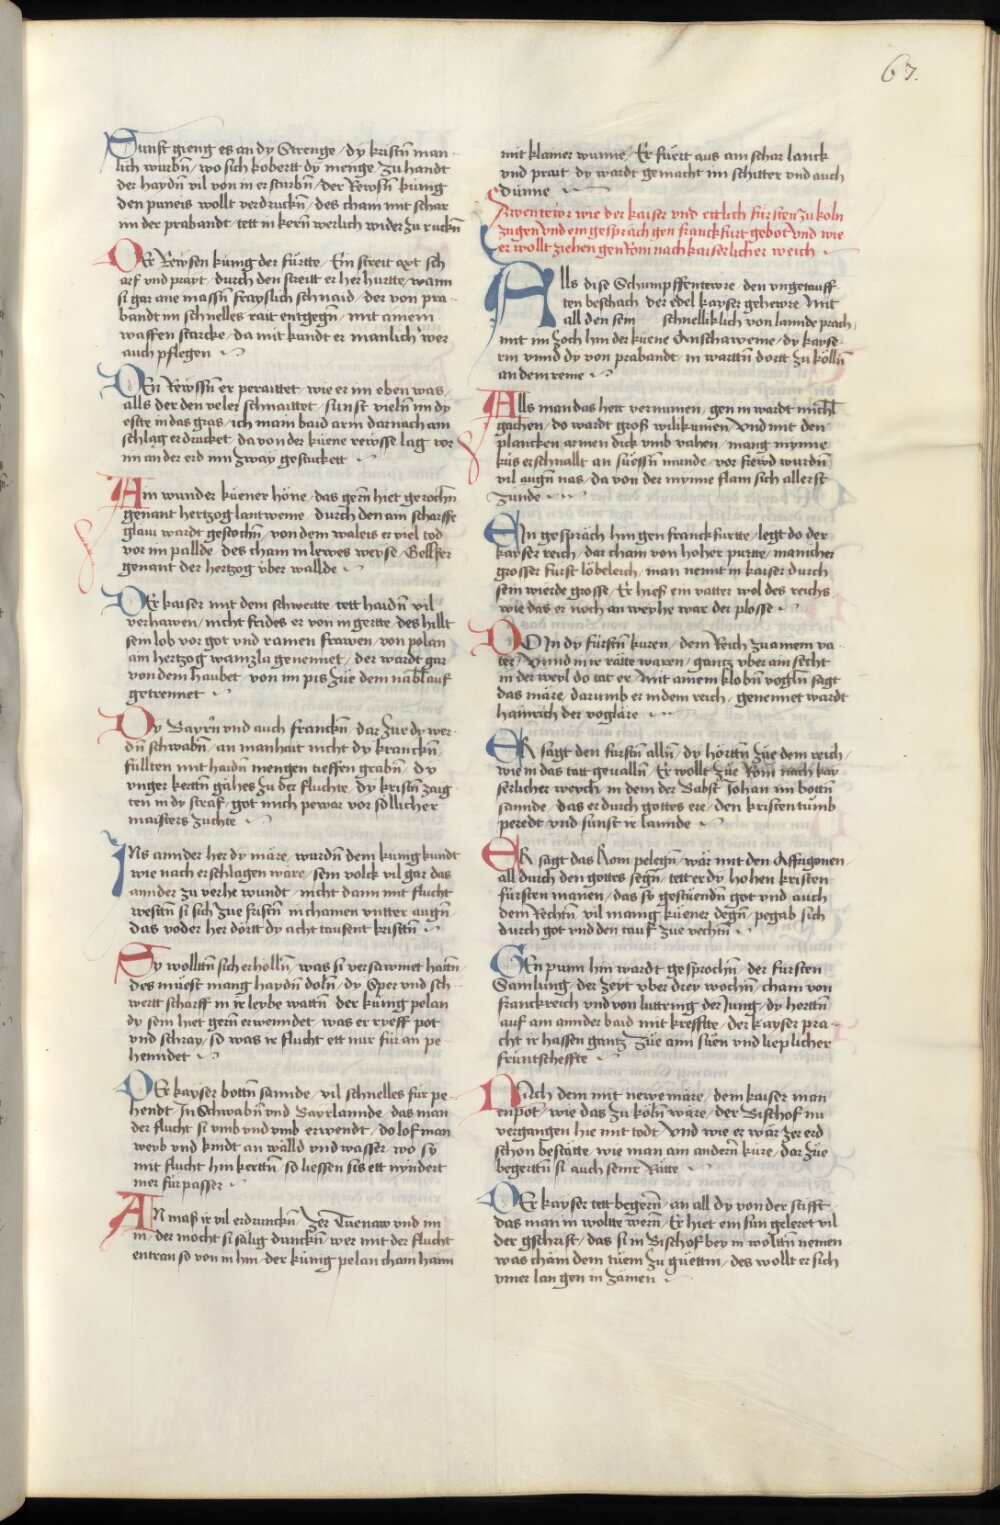 67.
Sunst gieng es an dy Strenge / dy kristn̄ man-
lich wurbn̄ / wo sich kobertt dy menge / zu handt
der haydn̄ vil von in erstarbn̄ / der Rewsn̄ kunig
den puneis wollt verdruckn̄ / des cham mit schar
im der prabandt / tett in kern̄ werlich wider zu ruckn̄
DEr Rewsen kunig der fuertte / Ein streit axt sch
arf vnd prayt / durch den streitt er her hurtte / wann
si gar ane massn̄ frayslich schnaid / der von pra-
bandt im schnelles rait entgegn̄ / mit ainem
waffen starcke / da mit kundt er manlich wer
auch pflegen
DEn Rewssn̄ er peraittet / wie er im eben was /
alls der den veler schnaittet / sunst vieln̄ im dy
esste in das gras / ich main baid arm darnach am
schlag er drucket da von der küene rewsse lag vor
im an der erd inn zway gestuckett
Ain wunder küener höne / das gern̄ hiet gerochn̄
genant hertzog lantweine / durch den ain scharffe
glaui wardt gestochn̄ / von dem waleis er viel tod
vor im pallde / des cham in lewes weyse / Gellfer
genant der hertzog über wallde
DEr kaiser mit dem schwertte / tett haidn̄ vil
verhawen / nicht frides er von in gertte / des hillt
sein lob vor got vnd rainen frawen / von polan
ain hertzog wainzla genennet / der wardt gar
von dem haubet / von im pis züe dem nabl auf
getrennet
Dy Bayrn̄ vnd auch franckn̄ / dar züe dy wer-
dn̄ schwabn̄ / an manhait nicht dy kranckn̄
füllten mit haidn̄ mengen tieffen grabn̄ / dy
vnger kertn̄ gähes zu der fluchte / dy kristn̄ zaig
ten in dy straf / got mich pewar vor sollicher
maisters zuchte
INs annder her dy märe / wurdn̄ dem kunig kundt
wie nach erschlagen ware / sein volck vil gar das
annder zu verhe wundt / nicht dann mit flucht
westn̄ si sich züe fristn̄ in chamen vntter augn̄
das voder her dortt dy acht tausent kristn̄
Sy wolltn̄ sich erhollñ / was si versawmet haitn̄ /
des müest manig haydn̄ doln̄ / dy Sper vnd sch
wertt scharff in ir leybe wattn̄ / der kunig pelan
dy sein hiet gern̄ erwenndet / was er ryeff pot
vnd schray / so was ir flucht ett nur für an pe-
henndet
DEr kayser bottn̄ sannde / vil schnelles für pe-
hendt / In Schwabn̄ vnd Bayrlannde / das man
der flucht si vmb vnd vmb erwendt / do lof man
weyb vnd kindt an wälld vnd wasser / wo sy
mit flucht hin kerttn̄ / so liessen sis ett nyndert
mer für passer
AN mass ir vil erdrunckn̄ / zer Tuenaw vnd im
in / der mocht si sälig dunckn̄ / wer mit der flucht
entran so von in hin / der künig pelan cham hain
mit klainer wunne / Er füert aus ain schar lanck
vnd prait / dy wardt gemacht im schitter vnd auch
dünne
Awentewr wie der kaiser vnd ettlich fürsten zu köln
zugen vnd ein gespräch gen franckfurt gebot vnd wie
er wollt ziehen gen Rom nach kaiserlicher weich
Alls dise Schumpffentewre / den vngetauff
ten beschach / der edel kayser gehewre / Mit
all den sein schnelliklich von lannde prach /
mit im zoch hin der küene Anschaweine / dy kayse-
rin vnnd dy von prabandt / in warttn̄ dortt zu kölln̄
an dem reine
Alls man das hett vernumen / gen in wardt michl
gachen / do wardt groß willkumen / Vnd mit den
plancken armen dick vmb vahen / manig mynne
küs erschnallt an süessn̄ munde / vor frewd wurdn̄
vil augn̄ nas / da von der mynne flam sich allerst
zünde
Ein gespräch hin gen franckfurtte / legt do der
kayser reich / dar cham von hoher purtte / manicher
grosser fürst löbeleich / man nennt in kaiser durch
sein wierde grosse / Er hies ein vatter wol des reichs
wie das er noch an weyhe war der plosse
DO In dy fürstn̄ kuren / dem Reich zu ainem va-
ter / Vnnd in ir rätte waren / gantz vber ain secht
in der weyl do tat er / Mit ainem klobn̄ vogln̄ sagt
das märe / darumb er in dem reich / genennet wardt
hainrich der voglare
ER sagt den fürstn̄ alln̄ / dy hörttn̄ züe dem reich /
wie in das tatt geualln̄ / Er wollt züe Rom nach kay
serlicher weych / in dem der Babst Johan im bottn̄
sannde / das er durch gottes ere / den kristentumb
peredt vnd sunst ir lannde
ER sagt das Rom pelegn̄ / wär mit den Affrigonen
all durch den gottes segn̄ / tett er dy hohen kristen
fürsten manen / das sy gestüendn̄ got vnd auch
dem Rechtn̄ / vil manig küener degn̄ / pegab sich
durch got vnd den tauf züe vechtn̄
GEn punn hin wardt gesprochn̄ / der fürsten
Samlung / der zeyt vber drey wochn̄ / cham von
franckreich vnd von luttring der Jung / dy herttn̄
auf ain annder baid mit krefftte / der kayser pra-
cht ir hassen gantz züe ainn süen vnd lieplicher
früntscheffte
NAch dem mit newe märe / dem kaiser man
enpot / wie das zu köln̄ wäre / der Bischof nu
vergangen hie mit todt / Vnd wie er wär zer erd
schon bestätte / wie man ain andern̄ küre / dar züe
begerttn̄ si auch seinr Rätte
DEr kayser tett begern̄ / an all dy von der stifft /
das man in wollte wern̄ / Er hiet ein sun geleret vil
der gschrift / das si in Bischof bey in wolltn̄ nemen
was chäm dem tüem zu güettin / des wollt er sich
ymer lan gen in zämen